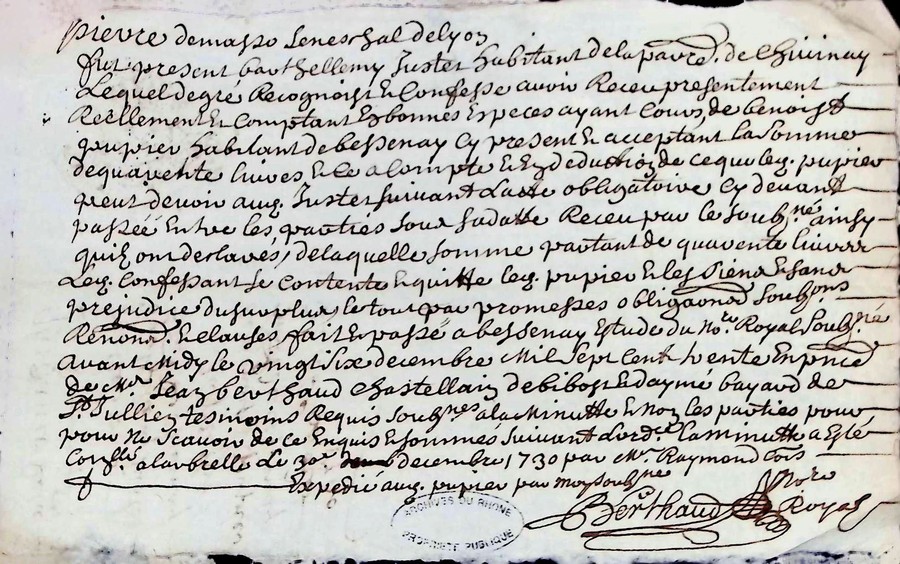 pierre demasso seneschal delyon
fut present barthellemy Juster habitant de la parr.e de Chivinay
Lequel degré Recognoist et Confesse avoir Receu presentement
Reellement et Comptant En bonnes Especes ayant Cours, de benoist
pupier habitant de bessenay Cy present et acceptant la Somme
de quarente livres et Ce a Compte et En deduction de ce que led. pupier
peut devoir aud. Juster suivant Lacte obligatoire Cy devant
passée Entre les parties Sous sa datte Receu par le soubs.né ainsy
quils ont desclarés, de laquelle somme partant de quarente livres
Led. Confessant se Contente Et quitte led. pupier et les siens et sans
prejudice du surplus, le tout par promesses obligaons soub.ons
Renond. et clauses fait et passé a bessenay Estude du No.re Royal soubs.né
avant Midy le vingt six decembre Mil sept cent trente En pnce
de M.r Jean berthaud Chastellain de bibost et daymé bayard de
S.t Jullien tesmoins Requis soubs.nes a la Minutte et Non les parties pour
pour Ne scavoir de ce Enquis et sommés suivant Lord.ce la minutte a Esté
Con.llé a larbrelle Le 30.e decembre 1730 par M.r Raymond
Expedié aud. pupier par moy soubs.né
Berthaud N.ore
Royal
ARCHIVES DU RHÔNE
PROPRIÉTÉ PUBLIQUE